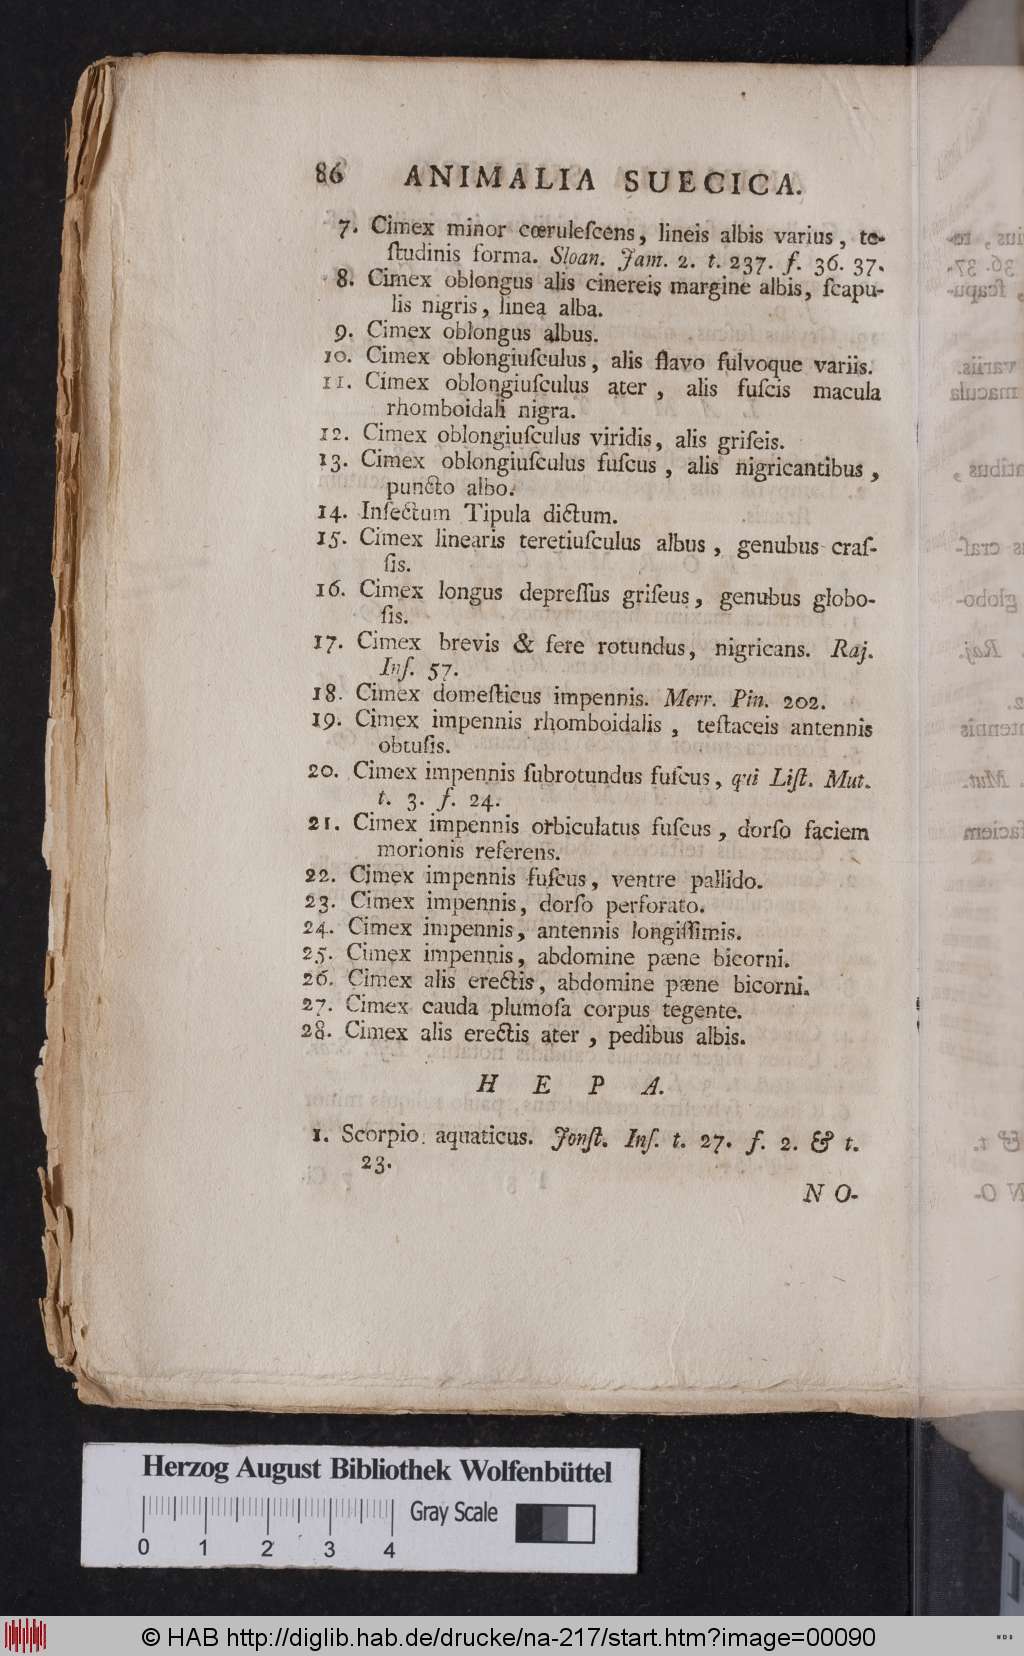 86 ANIMALIA SUECICA.
7. Cimex minor cœruleſcens, lineis albis varius, te-
ſtudinis forma. Sloan. Jam. 2. t. 237. f. 36. 37.
8. Cimex oblongus alis cinereis margine albis, ſcapu-
lis nigris, linea alba.
9. Cimex oblongus albus.
10. Cimex oblongiuſculus, alis flavo fulvoque variis.
11. Cimex oblongiuſculus ater, alis fuſcis macula
rhomboidali nigra.
12. Cimex oblongiuſculus viridis, alis griſeis.
13. Cimex oblongiuſculus fuſcus, alis nigricantibus,
puncto albo.
14. Inſectum Tipula dictum.
15. Cimex linearis teretiuſculus albus, genubus craſ-
ſis.
16. Cimex longus depreſſus griſeus, genubus globo-
ſis.
17. Cimex brevis & fere rotundus, nigricans. Raj.
Inſ. 57.
18. Cimex domeſticus impennis. Merr. Pin. 202.
19. Cimex impennis rhomboidalis, teſtaceis antennis
obtuſis.
20. Cimex impennis ſubrotundus fuſcus, qui Liſt. Mut.
t. 3. f. 24.
21. Cimex impennis orbiculatus fuſcus, dorſo faciem
morionis referens.
22. Cimex impennis fuſcus, ventre pallido.
23. Cimex impennis, dorſo perforato.
24. Cimex impennis, antennis longiſſimis.
25. Cimex impennis, abdomine pæne bicorni.
26. Cimex alis erectis, abdomine pæne bicorni.
27. Cimex cauda plumoſa corpus tegente.
28. Cimex alis erectis ater, pedibus albis.
HEPA.
1. Scorpio aquaticus. Jonſt. Inſ. t. 27. f. 2. & t.
23.
NO-
Herzog August Bibliothek Wolfenbüttel
Gray Scale
0 1 2 3 4
© HAB http://diglib.hab.de/drucke/na-217/start.htm?image=00090